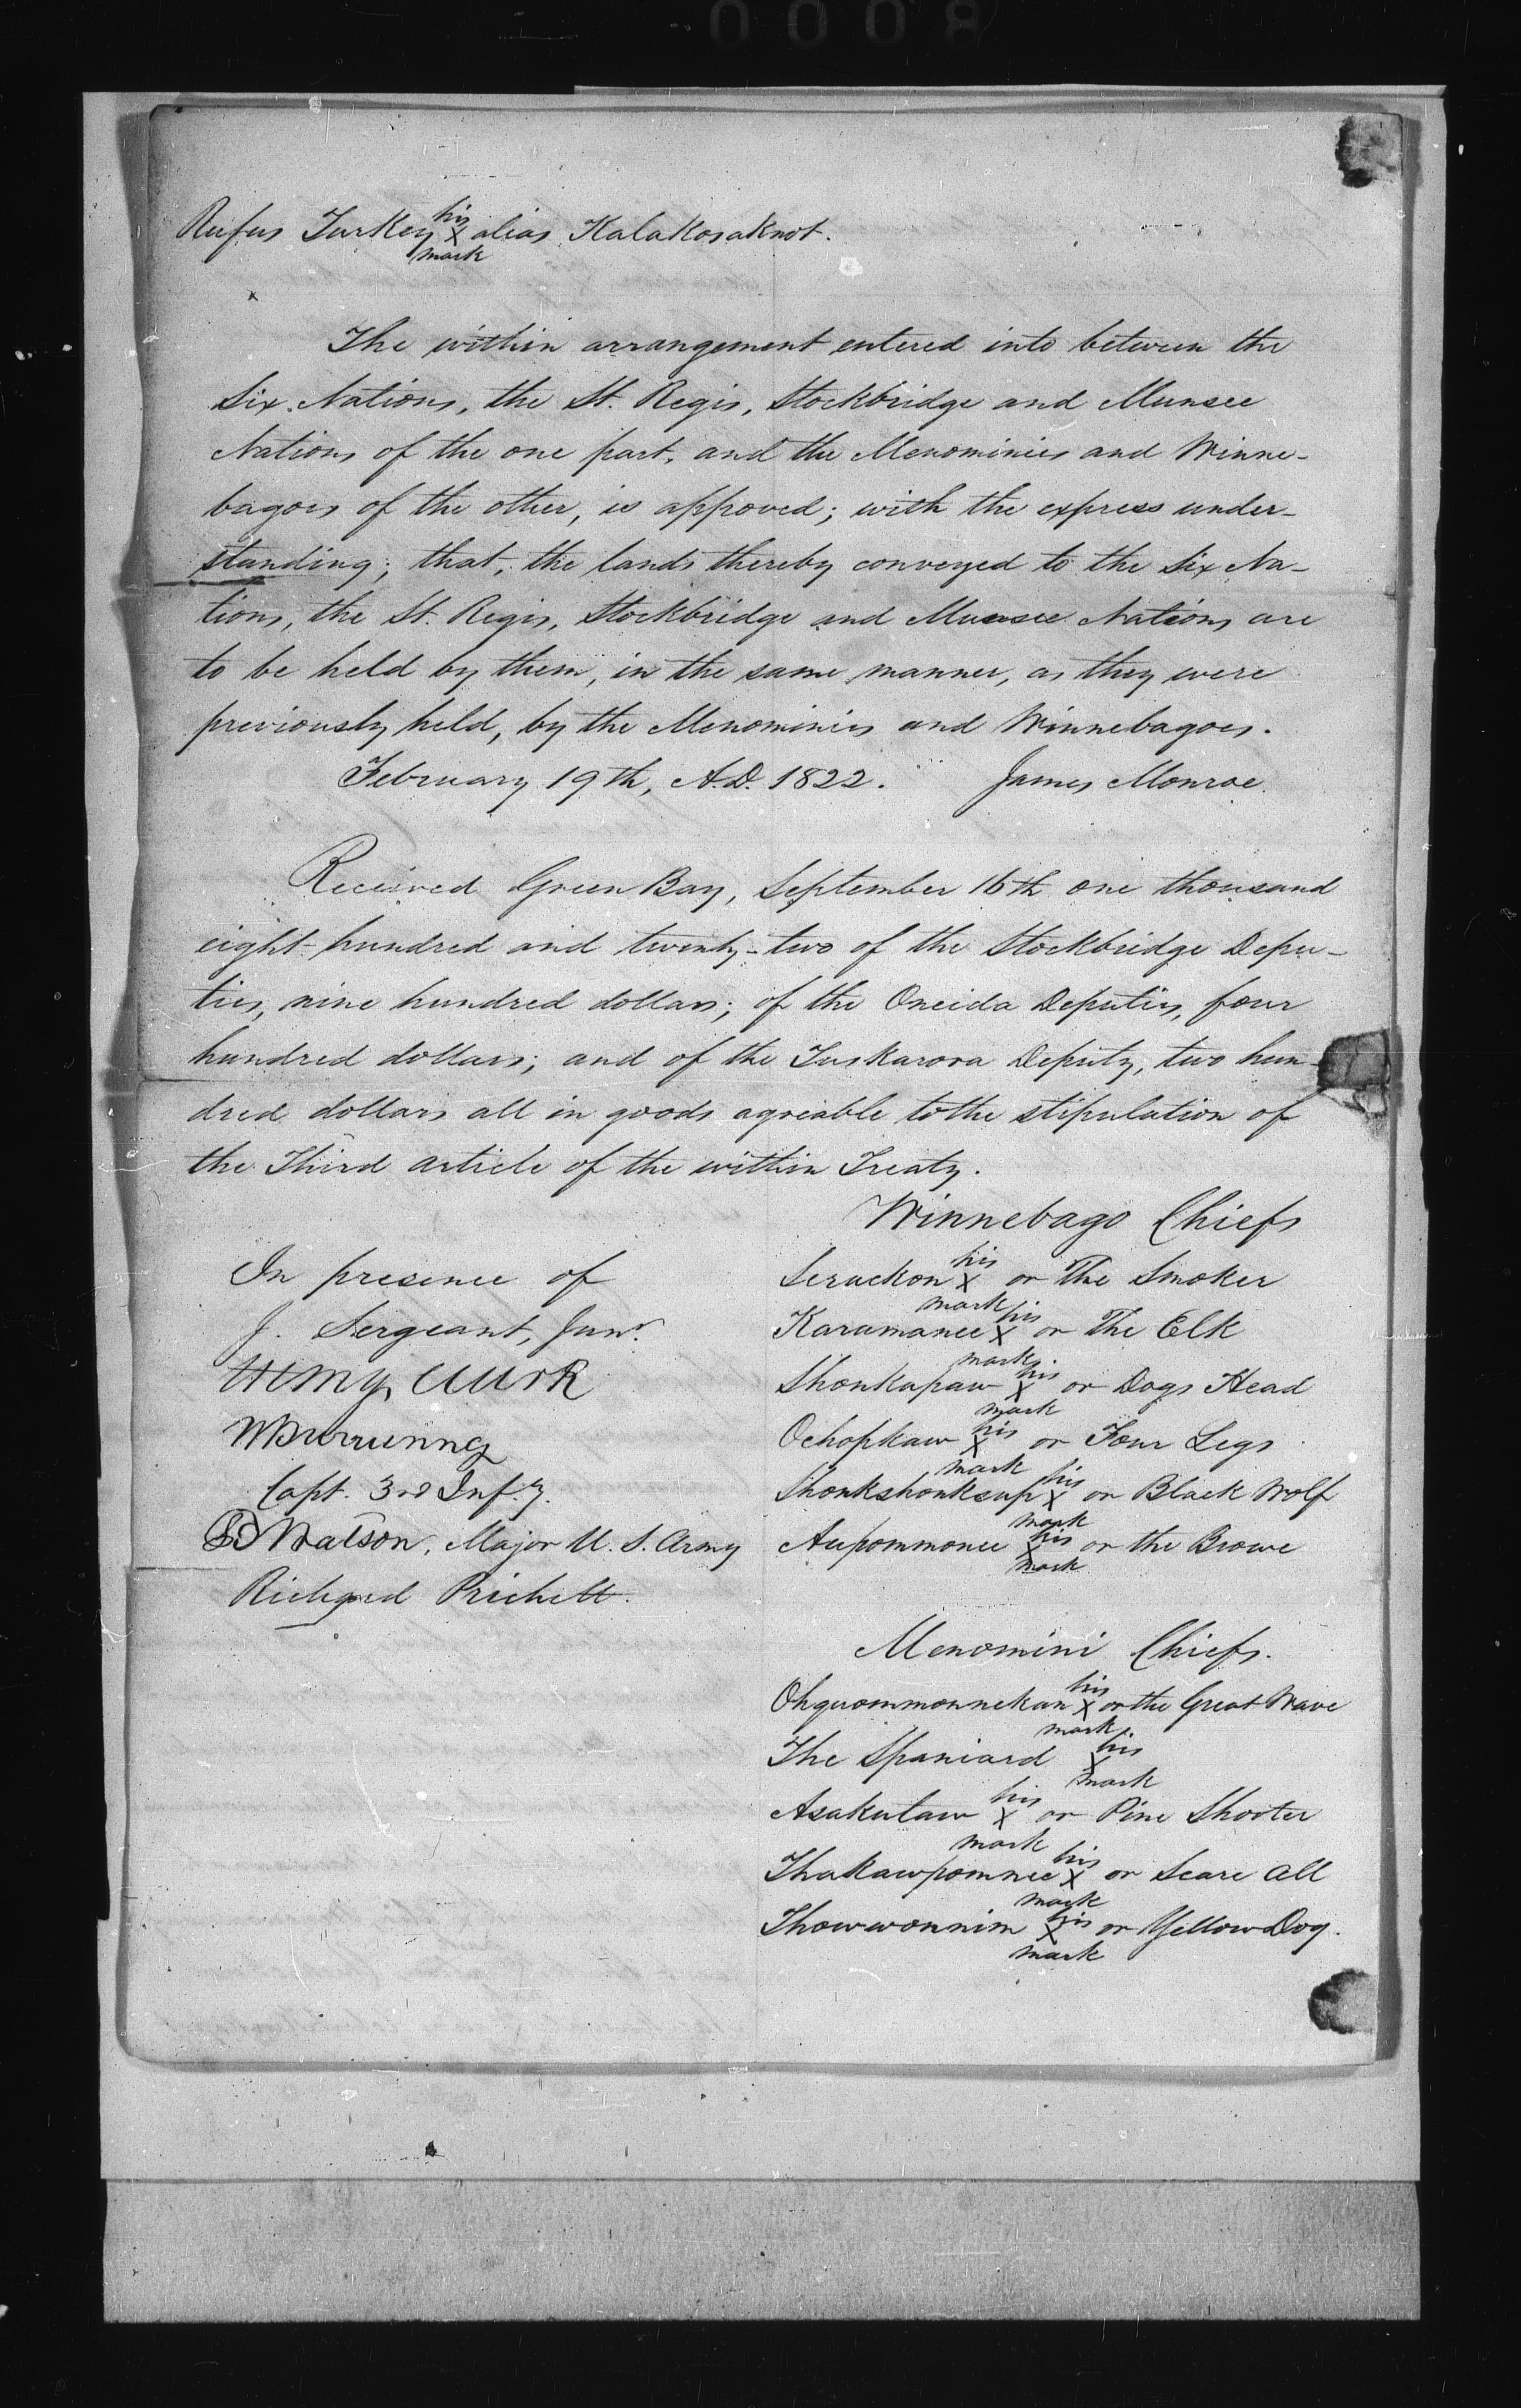 0008
Rufus Turkey his x mark alias Kalakosaknot.
The within arrangement entered into between the
Six Nations, the St. Regis, Stockbridge and Munsee
Nations of the one part, and the Menominies and Winne-
bagoes of the other, is appoved; with the express under-
standing; that, the lands thereby conveyed to the Six Na-
tions, the St. Regis, Stockbridge and Munsee Nations are
to be held by them, in the same manner, as they were
previously held, by the Menominies and Winnebagoes.
February 19th, A.D. 1822. James Monroe.
Received Green Bay, September 16th one thousand
eight hundred and twenty-two of the Stockbridge Depu-
ties, nine hundred dollars; of the Oneida Deputies, four
hundred dollars; and of the Tuskarora Deputy, two hun-
dred dollars all in goods agreable to the stipulation of
the Third article of the within Treaty.
Winnebago Chiefs
In presence of
J. Sergeant, Junr.
Capt. 3rd Infy.
Watson, Major U. S. Army
Richard Prickett.
Serackon his x mark or The Smoker
Karamanee his x mark or The Elk
Shonkapaw his x mark or Dogs Head
Ochopkaw his x mark or Four Legs
Shonkshonksap his x mark or Black Wolf
Aupommonee his x mark or the Browe
Menomini Chiefs.
Ohquommonnekan his x mark or the Great Wave
The Spaniard his x mark
Asakutaw his x mark or Pine Shooter
Thakawpomnee his x mark or Scare All
Showwonnim his x mark or Yellow Dog.